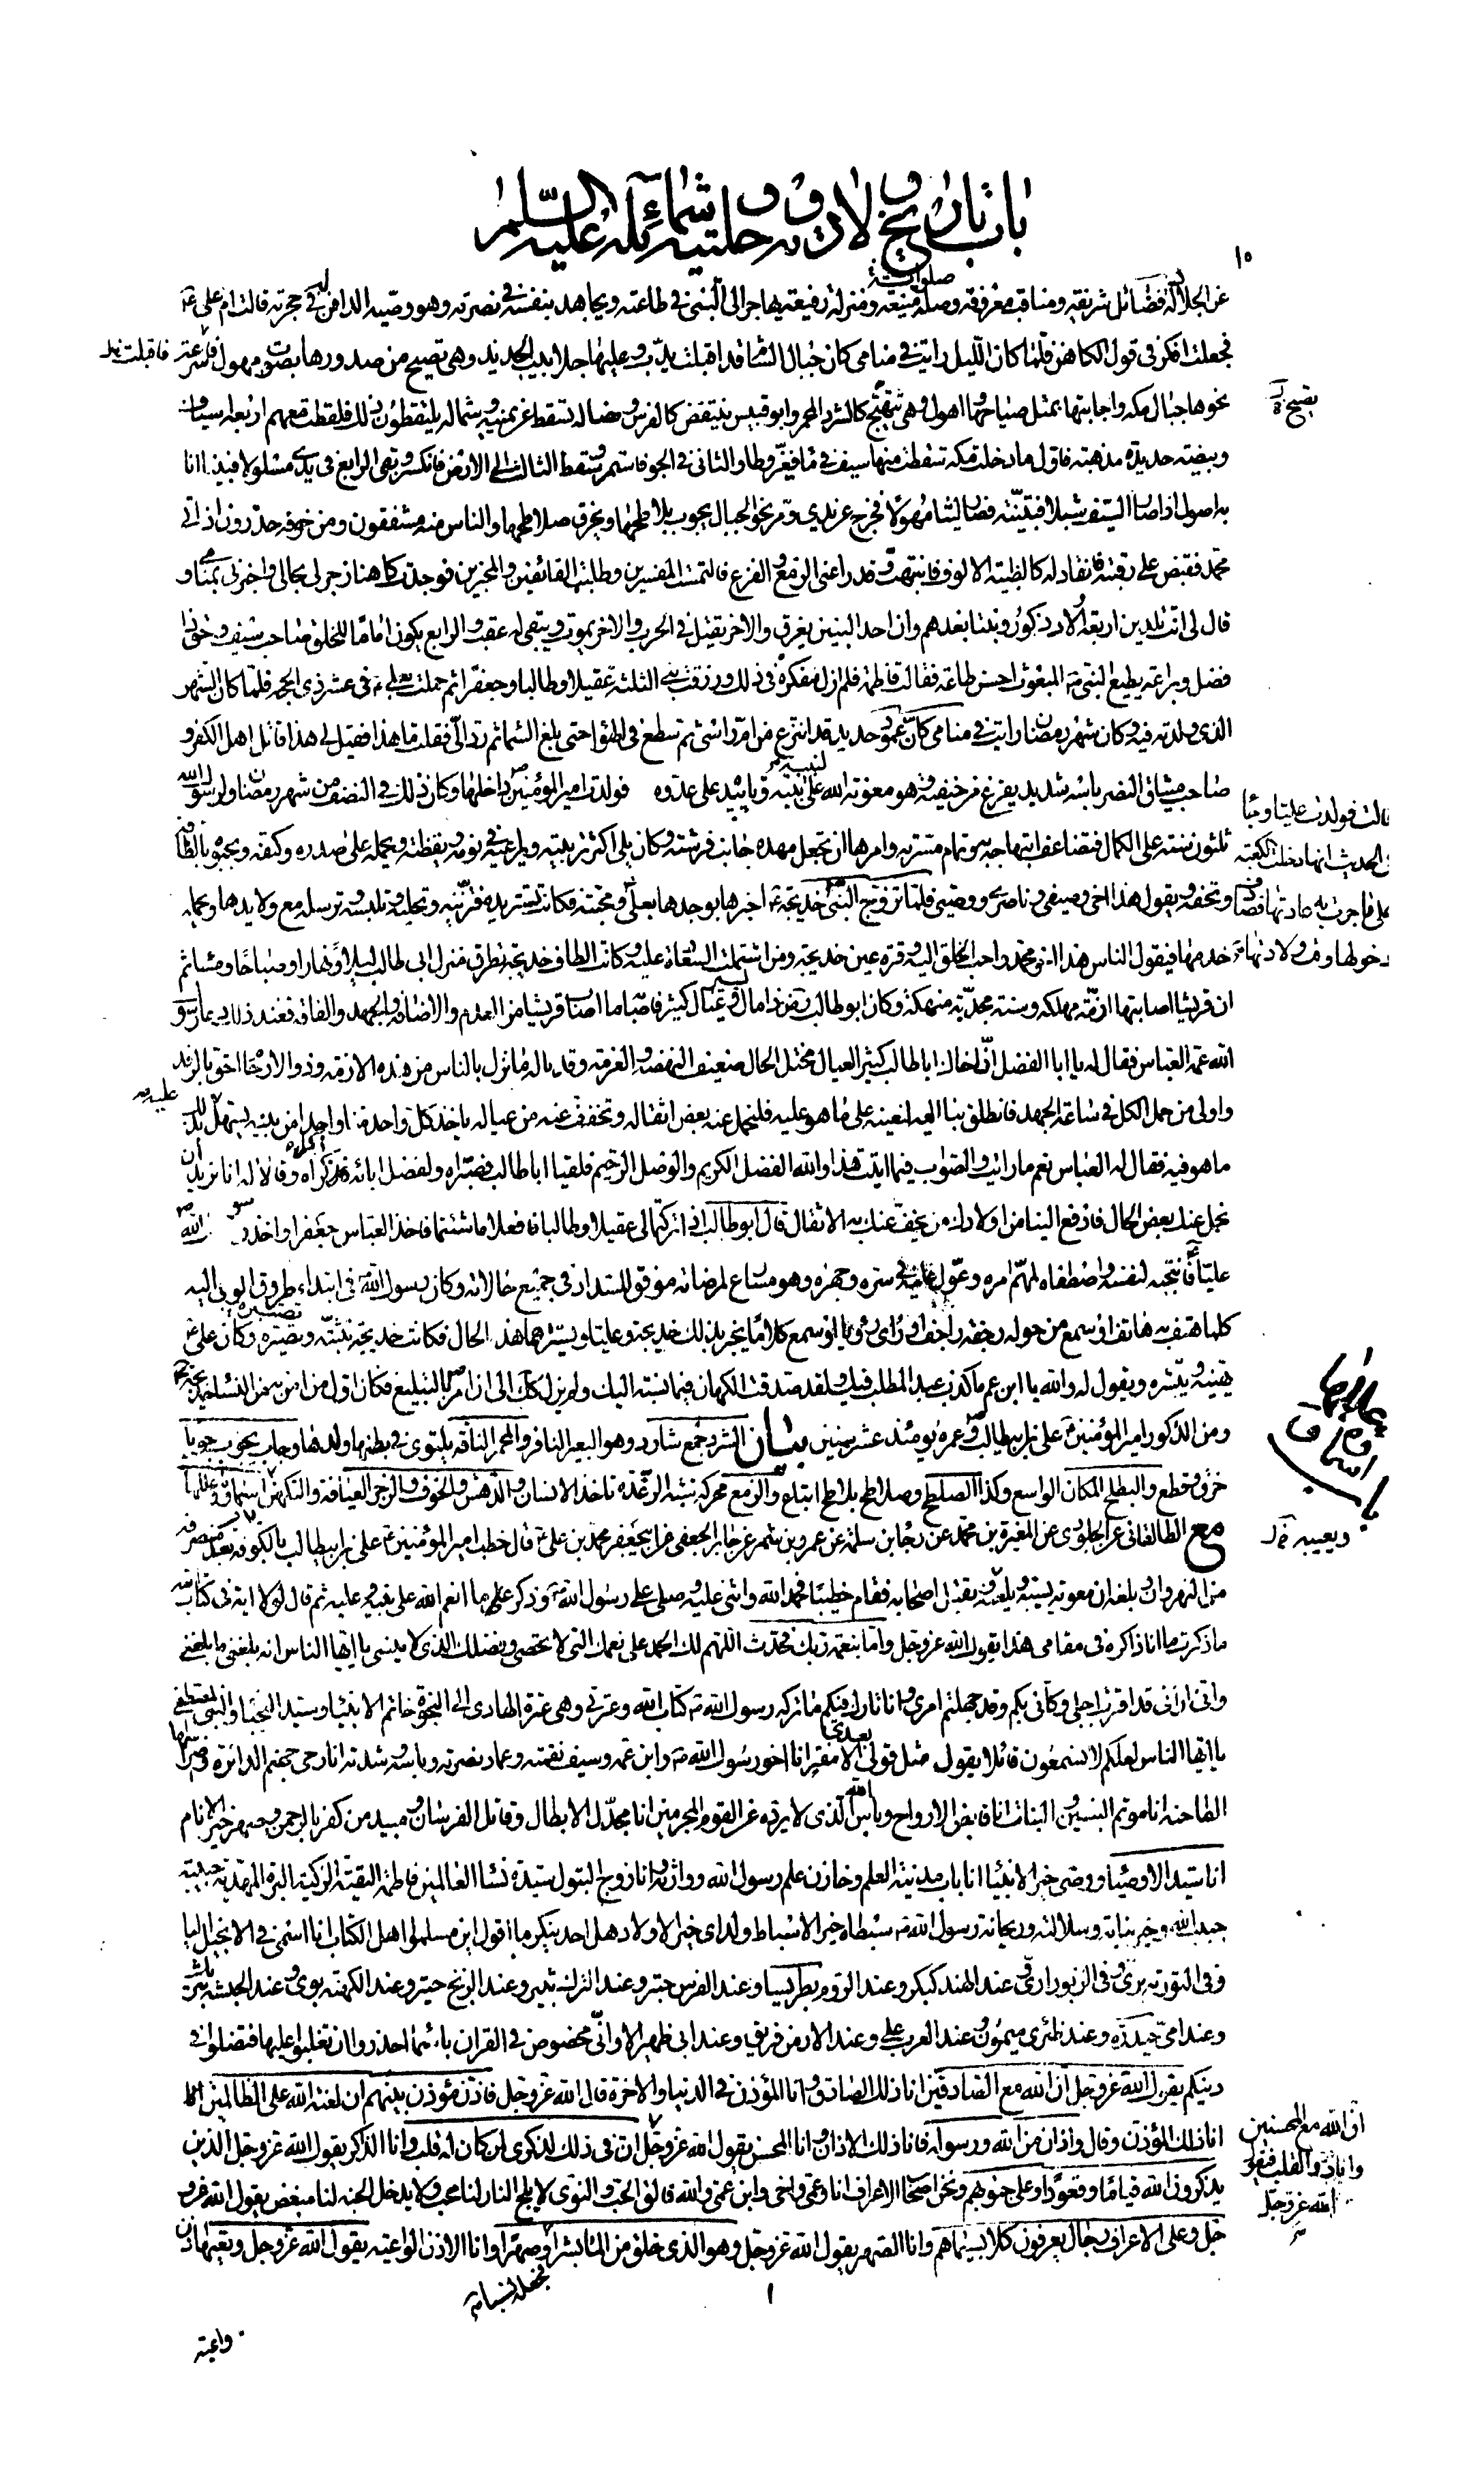 باب تاريخ ولادته وحليته وشمائله عليه السّلم
١٥
عن الجلالة فضائل شريفة ومناقب معروفة وصلة منيعة ومنزلة رفيعة يهاجر الى النبى فى طاعته ويجاهد بنفسه فى نصرته وهو وصيه الدافن له فى حجرته قالت ام على ع
فجعلت افكر فى قول الكاهن فلما كان الليل رايت فى منامى كان جبال الشام قد اقبلت تدب وعليها جلابيب الحديد وهى تصيح من صدورها بصوت مهول فاسرعت
فاقبلت
نحوها جبال مكة واجابتها بمثل صياحها واهول وهى تتهيج كالشرد المحمر وابو قبيس ينتفض كالفرس وفصاله تسقط عن يمينه وشماله والناس يلتقطون ذلك فلقطت معهم اربعة اسياف
وبيضة حديدة مذهبة فاول ما دخلت مكة سقط منها سيف فى ماء فغير وطار الثانى فى الجو فاستمر وسقط الثالث الى الارض فانكسر وبقى الرابع فى يدى مسلولا فبينا انا
به اصول اذا صار السيف شبلا فتبينته فصار ليثا مهولا فخرج عن يدى ومر نحو الجبال يجوب بلاطحها ويخرق صلاطحها والناس منه مشفقون ومن خوفه حذرون اذ اتى
محمد فقبض على رقبته فانقاد له كالظبية الالوف فانتبهت وقد راعنى الزمع والفزع فالتمست المفسرين وطلبت القائفين والمخبرين فوجدت كاهنا زجر لى بحالى واخبرنى بمنامى و
قال لى انت تلدين اربعة اولاد ذكور وبنتا بعدهم وان احد البنين يغرق والاخر يقتل فى الحرب والاخر يموت ويبقى له عقب والرابع يكون اماما للخلق صاحب سيف وحق ذا
فضل وبراعة يطيع النبى المبعوث احسن طاعة فقالت فاطمة فلم ازل مفكرة فى ذلك ورزقت بنى الثلثة عقيلا وطالبا وجعفرا ثم حملت بعلى ع فى عشر ذى الحجة فلما كان الشهر
الذى ولدته فيه وكان شهر رمضان رايت فى منامى كان عمود حديد قد انتزع من ام راسى ثم سطع فى الهواء حتى بلغ السماء ثم رد الى فقلت ما هذا فقيل لى هذا قاتل اهل الكفر و
صاحب ميثاق النصر باسه شديد يفزع من خيفته وهو معونة الله على نبيه وتاييده على عدوه فولدت امير المؤمنين داخلها وكان ذلك فى النصف من شهر رمضان ولرسول الله
ثلثون سنة على الكمال فتضاعف ابتهاجه به وتمام مسرته وامرها ان تجعل مهده جانب فرشته وكان يلى اكثر تربيته ويراعيه فى نومه ويقظته ويحمله على صدره وكتفه ويحبوه بالطافه
وتحفه ويقول هذا اخى وصفيى وناصرى ووصيى فلما تزوج النبى خديجة اخبرها بوجده بعلى ومحبته فكانت تستزيده فتزينه وتحليه وتلبسه وترسله مع ولايدها ويحمله
خدمها فيقول الناس هذا اخو محمد واحب الخلق اليه وقرة عين خديجة ومن اشتملت السعادة عليه وكانت الطاف خديجة تطرق منزل ابى طالب ليلا ونهارا وصباحا ومساء ثم
ان قريشا اصابتها ازمة مهلكة وسنة مجدبة منهكة وكان ابو طالب رض ذا مال يسير وعيال كثير فاصابه ما اصاب قريشا من العدم والاضافة والجهد والفاقة فعند ذلك دعا رسول
الله عمه العباس فقال له يا ابا الفضل ان اخاك ابا طالب كثير العيال مختل الحال ضعيف النهضة والعزمة وقد ناله ما نزل بالناس من هذه الازمة وذوو الارحام احق بالرفد
واولى من حمل الكل فى ساعة الجهد فانطلق بنا اليه لنعينه على ما هو عليه فلنحمل عنه بعض اثقاله ونخفف عنه من عياله ياخذ كل واحد منا واحدا من بنيه يسهل بذلك عليه
ما هو فيه فقال له العباس نعم ما رايت والصواب فيما اتيت هذا والله الفضل الكريم والوصل الرحيم فلقيا ابا طالب فصبراه ولفضل ابائه ذكراه وقالا له انا نريد ان
نحمل عنك بعض الحال فادفع الينا من اولادك من يخف عنك به الاثقال قال ابو طالب اذا تركتما لى عقيلا وطالبا فافعلا ما شئتما فاخذ العباس جعفرا واخذ رسول الله
عليا فانتجبه لنفسه واصطفاه لمهم امره وعول عليه فى سره وجهره وهو مسارع لمرضاته موفق للسداد فى جميع حالاته وكان رسول الله فى ابتداء طروق الوحى اليه
كلما هتف به هاتف او سمع من حوله رجفة راجف او راى رؤيا او سمع كلاما يخبر بذلك خديجة وعليا ويستسرهما هذه الحال فكانت خديجة تثبته وتصبره وكان على ع
يهنيه ويبشره ويقول له والله يا ابن عم ما كذب عبد المطلب فيك ولقد صدقت الكهان فيما نسبته اليك ولم يزل كذلك الى ان امر بالتبليغ فكان اول من امن به من النساء خديجة
ومن الذكور امير المؤمنين على بن ابيطالب وعمره يومئذ عشر سنين بيان الشرد جمع شارد وهو البعير النافر والمجر الناقة يلتوى فى بطنها ولدها وجاب يجوب جوبا
خرق وقطع والبطح المكان الواسع وكذا الصلطح وصلاطح بلاطح اتباع والزمع محركة شبه الرعدة تاخذ الانسان والدهش والخوف والزجر العيافة والتكهن
باب اسمائه وعللها
مع الطالقانى عن الجلودى عن المغيرة بن محمد عن رجا بن سلمة عن عمرو بن شمر عن جابر الجعفى عن ابيجعفر محمد بن على ع قال خطب امير المؤمنين ع على بن ابيطالب بالكوفة بعد منصرفه
من النهروان وبلغه ان معوية يسبه ويلعنه ويقتل اصحابه فقام خطيبا فحمد الله واثنى عليه وصلى على رسول الله ص وذكر ما انعم الله على نبيه وعليه ثم قال لولا اية فى كتاب الله
ما ذكرت ما انا ذاكره فى مقامى هذا يقول الله عز وجل واما بنعمة ربك فحدث اللهم لك الحمد على نعمك التى لا تحصى وفضلك الذى لا ينسى يا ايها الناس انه بلغنى ما بلغنى
وانى ارانى قد اقترب اجلى وكانى بكم وقد جهلتم امرى وانا تارك فيكم ما تركه رسول الله ص كتاب الله وعترتى وهى عترة الهادى الى النجاة خاتم الانبياء وسيد النجباء والنبى المصطفى
يا ايها الناس لعلكم لا تسمعون قائلا يقول مثل قولى بعدى الا مفتر انا اخو رسول الله ص وابن عمه وسيف نقمته وعماد نصرته وباسه وشدته انا رحى جهنم الدائرة واضراسها
الطاحنة انا موتم البنين والبنات انا قابض الارواح وباس الله الذى لا يرده عن القوم المجرمين انا مجدل الابطال وقاتل الفرسان ومبيد من كفر بالرحمن وصهر خير الانام
انا سيد الاوصياء ووصى خير الانبياء انا باب مدينة العلم وخازن علم رسول الله ووارثه وانا زوج البتول سيدة نساء العالمين فاطمة التقية الزكية البرة المهدية حبيبة
حبيب الله وخير بناته وسلالته وريحانة رسول الله ص سبطاه خير الاسباط وولداى خير الاولاد هل احد ينكر ما اقول اين مسلموا اهل الكتاب انا اسمى فى الانجيل اليا
وفى التورية برئ وفى الزبور ارى وعند الهند كبكر وعند الروم بطريسا وعند الفرس حبتر وعند الترك بثير وعند الزنج حيتر وعند الكهنة بوئ وعند الحبشة بثريك
وعند امى حيدرة وعند ظئرى ميمون وعند العرب على وعند الارمن فريق وعند ابى ظهير الا وانى مخصوص فى القران باسماء احذروا ان تغلبوا عليها فتضلوا فى
دينكم يقول الله عز وجل ان الله مع الصادقين انا ذلك الصادق وانا المؤذن فى الدنيا والاخرة قال الله عز وجل فاذن مؤذن بينهم ان لعنة الله على الظالمين
انا ذلك المؤذن وقال واذان من الله ورسوله فانا ذلك الاذان وانا المحسن يقول الله عز وجل ان فى ذلك لذكرى لمن كان له قلب وانا الذاكر يقول الله عز وجل الذين
ان الله مع المحسنين
وانا ذو القلب فيقول
الله عز وجل
يذكرون الله قياما وقعودا وعلى جنوبهم ونحن اصحاب الاعراف انا وعمى واخى وابن عمى والله فالق الحب والنوى لا يلج النار لنا محب ولا يدخل الجنة لنا مبغض يقول الله عز و
جل وعلى الاعراف رجال يعرفون كلا بسيماهم وانا الصهر يقول الله عز وجل وهو الذى خلق من الماء بشرا فجعله نسبا وصهرا وانا الاذن الواعية يقول الله عز وجل وتعيها اذن
واعية